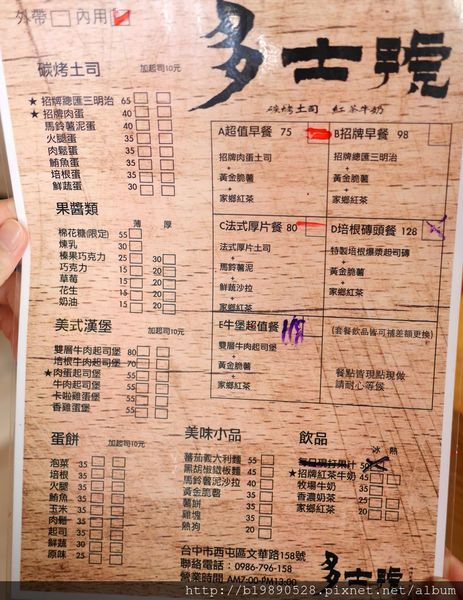 外帶 內用
多士號
碳烤土司 紅茶牛奶
碳烤土司 加起司10元
★ 招牌總匯三明治 65
★ 招牌肉蛋 40
馬鈴薯泥蛋
火腿蛋
肉鬆蛋
鮪魚蛋
培根蛋 30
鮮蔬蛋 30
果醬類 薄 厚
棉花糖(限定) 55
煉乳 30
榛果巧克力 25 30
巧克力 15 20
草莓 15 20
花生 15 20
奶油 15 20
美式漢堡 加起司10元
雙層牛肉起司堡 80
培根牛肉起司堡 70
★肉蛋起司堡 55
牛肉起司堡 55
卡啦雞蛋堡 55
香雞蛋堡 55
蛋餅 加起司10元
泡菜 35
培根 35
火腿 35
鮪魚 35
玉米 35
肉鬆 35
起司 35
鮮蔬 30
原味 25
A超值早餐 75
招牌肉蛋土司
+
黃金脆薯
+
家鄉紅茶
B招牌早餐 98
招牌總匯三明治
+
黃金脆薯
+
家鄉紅茶
C法式厚片餐 80
法式厚片土司
+
馬鈴薯泥
+
鮮蔬沙拉
+
家鄉紅茶
D培根磚頭餐 128
特製培根爆漿起司磚
+
黃金脆薯
+
家鄉紅茶
E牛堡超值餐
雙層牛肉起司堡
+
黃金脆薯
+
家鄉紅茶
(套餐飲品皆可補差額更換)
餐點皆現點現做
請耐心等候
美味小品
蕃茄義大利麵 55
黑胡椒鐵板麵 45
馬鈴薯泥沙拉 40
黃金脆薯 50
薯餅
雞塊
熱狗 20
飲品 冰 熱
每日現打果汁 50
★招牌紅茶牛奶
牧場牛奶
香濃奶茶
家鄉紅茶
台中市西屯區文華路158號
聯絡電話：0986-796-158
營業時間 AM7:00-PM13:00
多士號
http://b19890528.pixnet.net/album